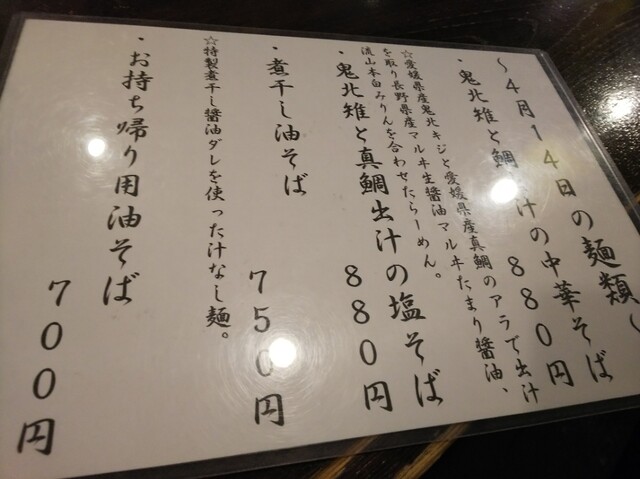 〜4月14日の麺類〜
・鬼北雉と鯛出汁の中華そば
880円
☆愛媛県産鬼北キジと愛媛県産真鯛のアラで出汁
を取り長野県産マルヰ生醤油マルヰたまり醤油、
流山本白みりんを合わせたらーめん。
・鬼北雉と真鯛出汁の塩そば
880円
・煮干し油そば
750円
☆特製煮干し醤油ダレを使った汁なし麺。
・お持ち帰り用油そば
700円